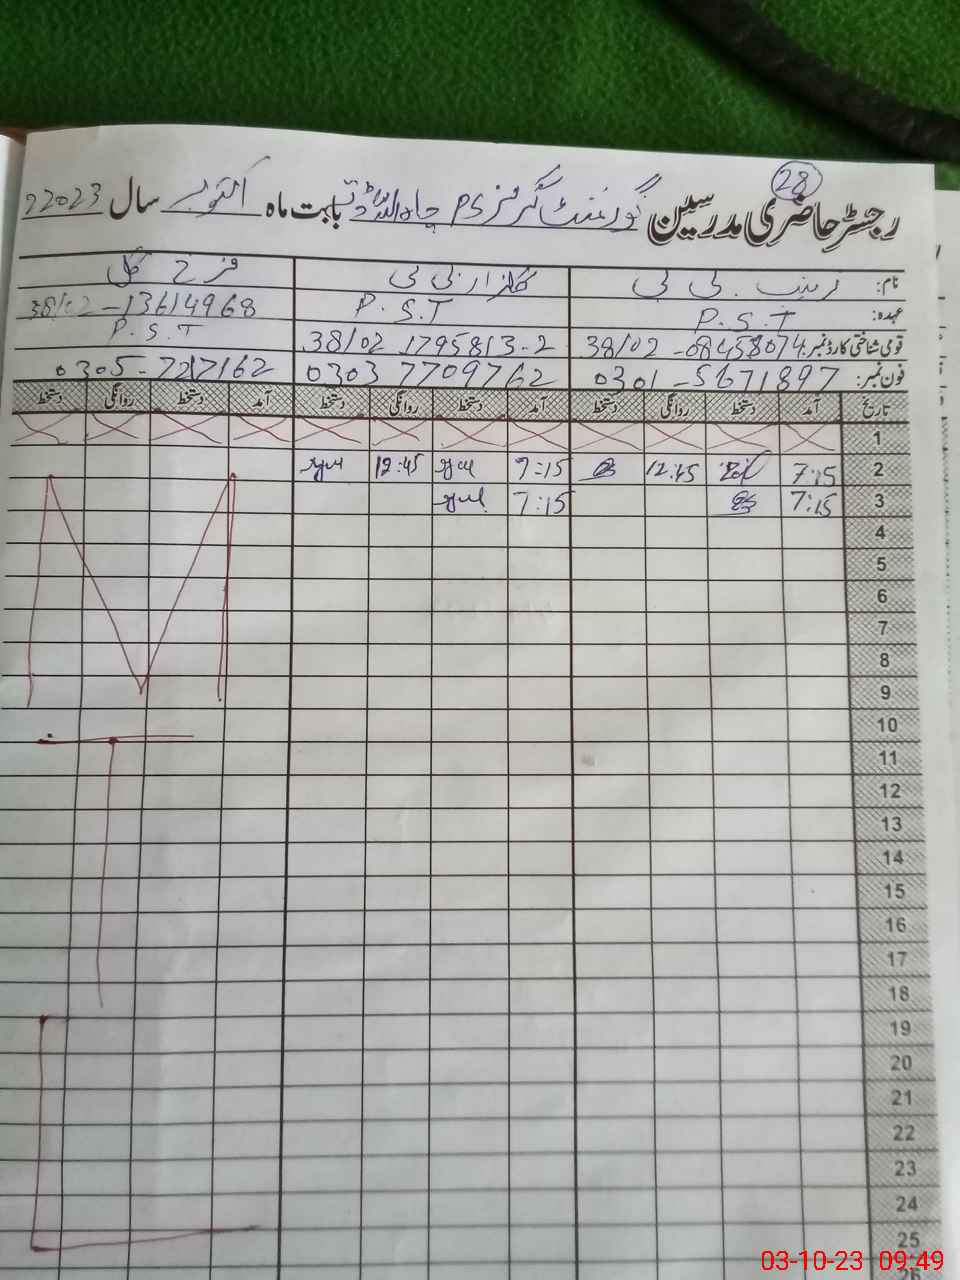 28
رجسٹر حاضری مدرسین گورنمنٹ گرلز PS چاہ بابت ماہ اکتوبر سال 2023
نام: زینب بی بی گلزار بی بی فرح گل
عہدہ: P.S.T P.S.T P.S.T
قومی شناختی کارڈ نمبر: 38102-08458074 38102 1795813-2 38102-13614968
فون نمبر: 0301-5671897 0303 7709762 0305-7217162
تاریخ آمد دستخط روانگی دستخط آمد دستخط روانگی دستخط آمد دستخط روانگی دستخط
1
2 7:15 12:45 7:15 12:45
3 7:15 7:15
4
5
6
7
8
9
10
11
12
13
14
15
16
17
18
19
20
21
22
23
24
25
26
M
T
L
03-10-23 09:49